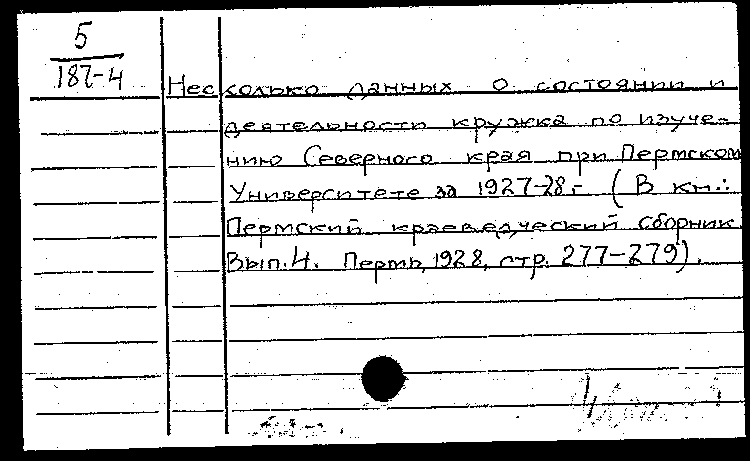 5
187-4
Несколько данных о состоянии и
деятельности кружка по изуче-
нию Северного края при Пермском
Университете за 1927-28.- (В кн.:
Пермский краеведческий сборник
Вып. 4. Пермь, 1928, стр. 277-279).